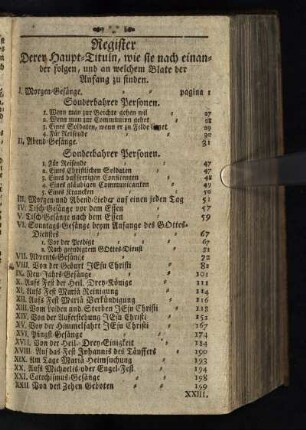 Register
Derer Haupt-Tituln, wie sie nach einan-
der folgen, und an welchem Blate der
Anfang zu finden.
I. Morgen-Gesänge. pagina 1
Sonderbahrer Personen.
1. Wenn man zur Gerichte gehen will 27
2. Wenn man zur Communion gehet 28
3. Eines Soldaten, wenn er zu Felde lieget 29
4. Für Reisende 30
II. Abend-Gesänge. 31
Sonderbahrer Personen.
1. Für Reisende 47
2. Eines Christlichen Soldaten 47
3. Eines bußfertigen Confitenten 47
4. Eines gläubigen Communicanten 47
5. Eines Krancken
III. Morgen und Abend-Lieder auf einen jeden Tag 51
IV. Tisch-Gesänge vor dem Essen 57
V. Tisch-Gesänge nach dem Essen 59
VI. Sonntags-Gesänge beym Anfange des GOttes-
Dienstes 67
1. Vor der Predigt 67
2. Nach geendigtem GOttes-Dienst 71
VII. Advents-Gesänge 72
VIII. Von der Geburt JEsu Christi 82
IX. Neu-Jahrs-Gesänge
X. Aufs Fest der Heil. Drey-Könige 111
XI. Aufs Fest Mariä Reinigung 114
XII. Aufs Fest Mariä Verkündigung 116
XIII. Vom Leiden und Sterben JEsu Christi
XIV. Von der Auferstehung JEsu Christi 151
XV. Von der Himmelfahrt JEsu Christi
XVI. Pfingst-Gesänge 174
XVII. Von der Heil. Drey-Einigkeit 184
XVIII. Auf das Fest Johannis des Täuffers 190
XIX. Am Tage Mariä Heimsuchung 193
XX. Aufs Michaelis oder Engel-Fest 194
XXI. Catechismus-Gesänge 198
XXII. Von den Zehen Geboten 199
XXIII.